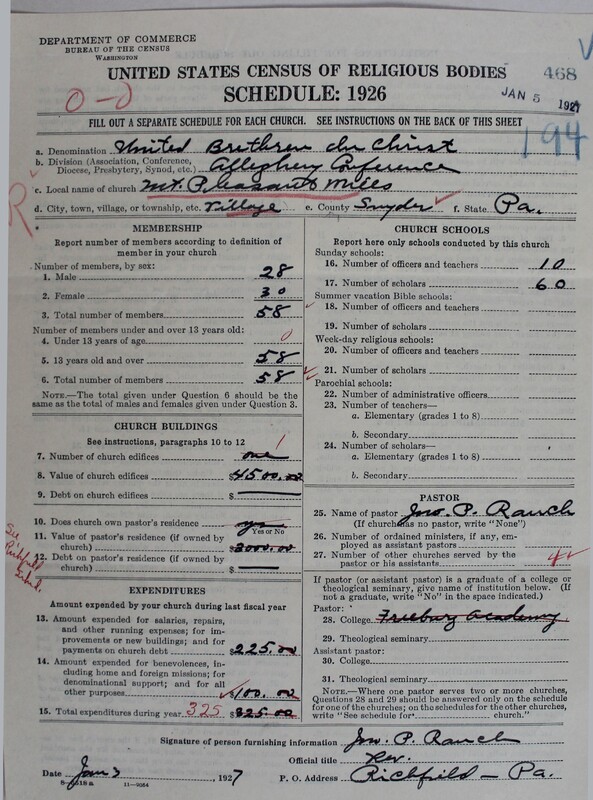 DEPARTMENT OF COMMERCE
BUREAU OF THE CENSUS
WASHINGTON
UNITED STATES CENSUS OF RELIGIOUS BODIES
SCHEDULE: 1926
468
JAN 5 1927
194
0-0
FILL OUT A SEPARATE SCHEDULE FOR EACH CHURCH. SEE INSTRUCTIONS ON THE BACK OF THIS SHEET
a. Denomination United Brethren in Christ
b. Division (Association, Conference, Diocese, Presbytery, Synod, etc.) Allegheny Conference
c. Local name of church Mt. Pleasant Mills
d. City, town, village, or township, etc. Village e. County Snyder f. State Pa.
R
MEMBERSHIP
Report number of members according to definition of
member in your church
Number of members, by sex:
1. Male 28
2. Female 30
3. Total number of members 58
Number of members under and over 13 years old:
4. Under 13 years of age 0
5. 13 years old and over 58
6. Total number of members 58
NOTE.—The total given under Question 6 should be
the same as the total of males and females given under Question 3.
CHURCH BUILDINGS
See instructions, paragraphs 10 to 12
7. Number of church edifices one 1
8. Value of church edifices $4500.00
9. Debt on church edifices $
10. Does church own pastor's residence yes
Yes or No
11. Value of pastor's residence (if owned by
church) $3000.00
12. Debt on pastor's residence (if owned by
church) $
See Richfield
EXPENDITURES
Amount expended by your church during last fiscal year
13. Amount expended for salaries, repairs,
and other running expenses; for im-
provements or new buildings; and for
payments on church debt $225.00
14. Amount expended for benevolences, in-
cluding home and foreign missions; for
denominational support; and for all
other purposes $100.00
15. Total expenditures during year 325 $325.00
CHURCH SCHOOLS
Report here only schools conducted by this church
Sunday schools:
16. Number of officers and teachers 10
17. Number of scholars 60
Summer vacation Bible schools:
18. Number of officers and teachers
19. Number of scholars
Week-day religious schools:
20. Number of officers and teachers
21. Number of scholars
Parochial schools:
22. Number of administrative officers
23. Number of teachers—
a. Elementary (grades 1 to 8)
b. Secondary
24. Number of scholars—
a. Elementary (grades 1 to 8)
b. Secondary
PASTOR
25. Name of pastor Jno. P. Rauch
(If church has no pastor, write "None")
26. Number of ordained ministers, if any, em-
ployed as assistant pastors
27. Number of other churches served by the
pastor or his assistants 4
If pastor (or assistant pastor) is a graduate of a college or
theological seminary, give name of institution below. (If
not a graduate, write "No" in the space indicated.)
Pastor:
28. College Freeburg Academy
29. Theological seminary
Assistant pastor:
30. College
31. Theological seminary
NOTE.—Where one pastor serves two or more churches,
Questions 28 and 29 should be answered only on the schedule
for one of the churches; on the schedules for the other churches,
write "See schedule for church."
Signature of person furnishing information Jno. P. Rauch
Official title Rev.
Date Jan 3, 1927 P. O. Address Richfield - Pa.
8-5518a 11-9064